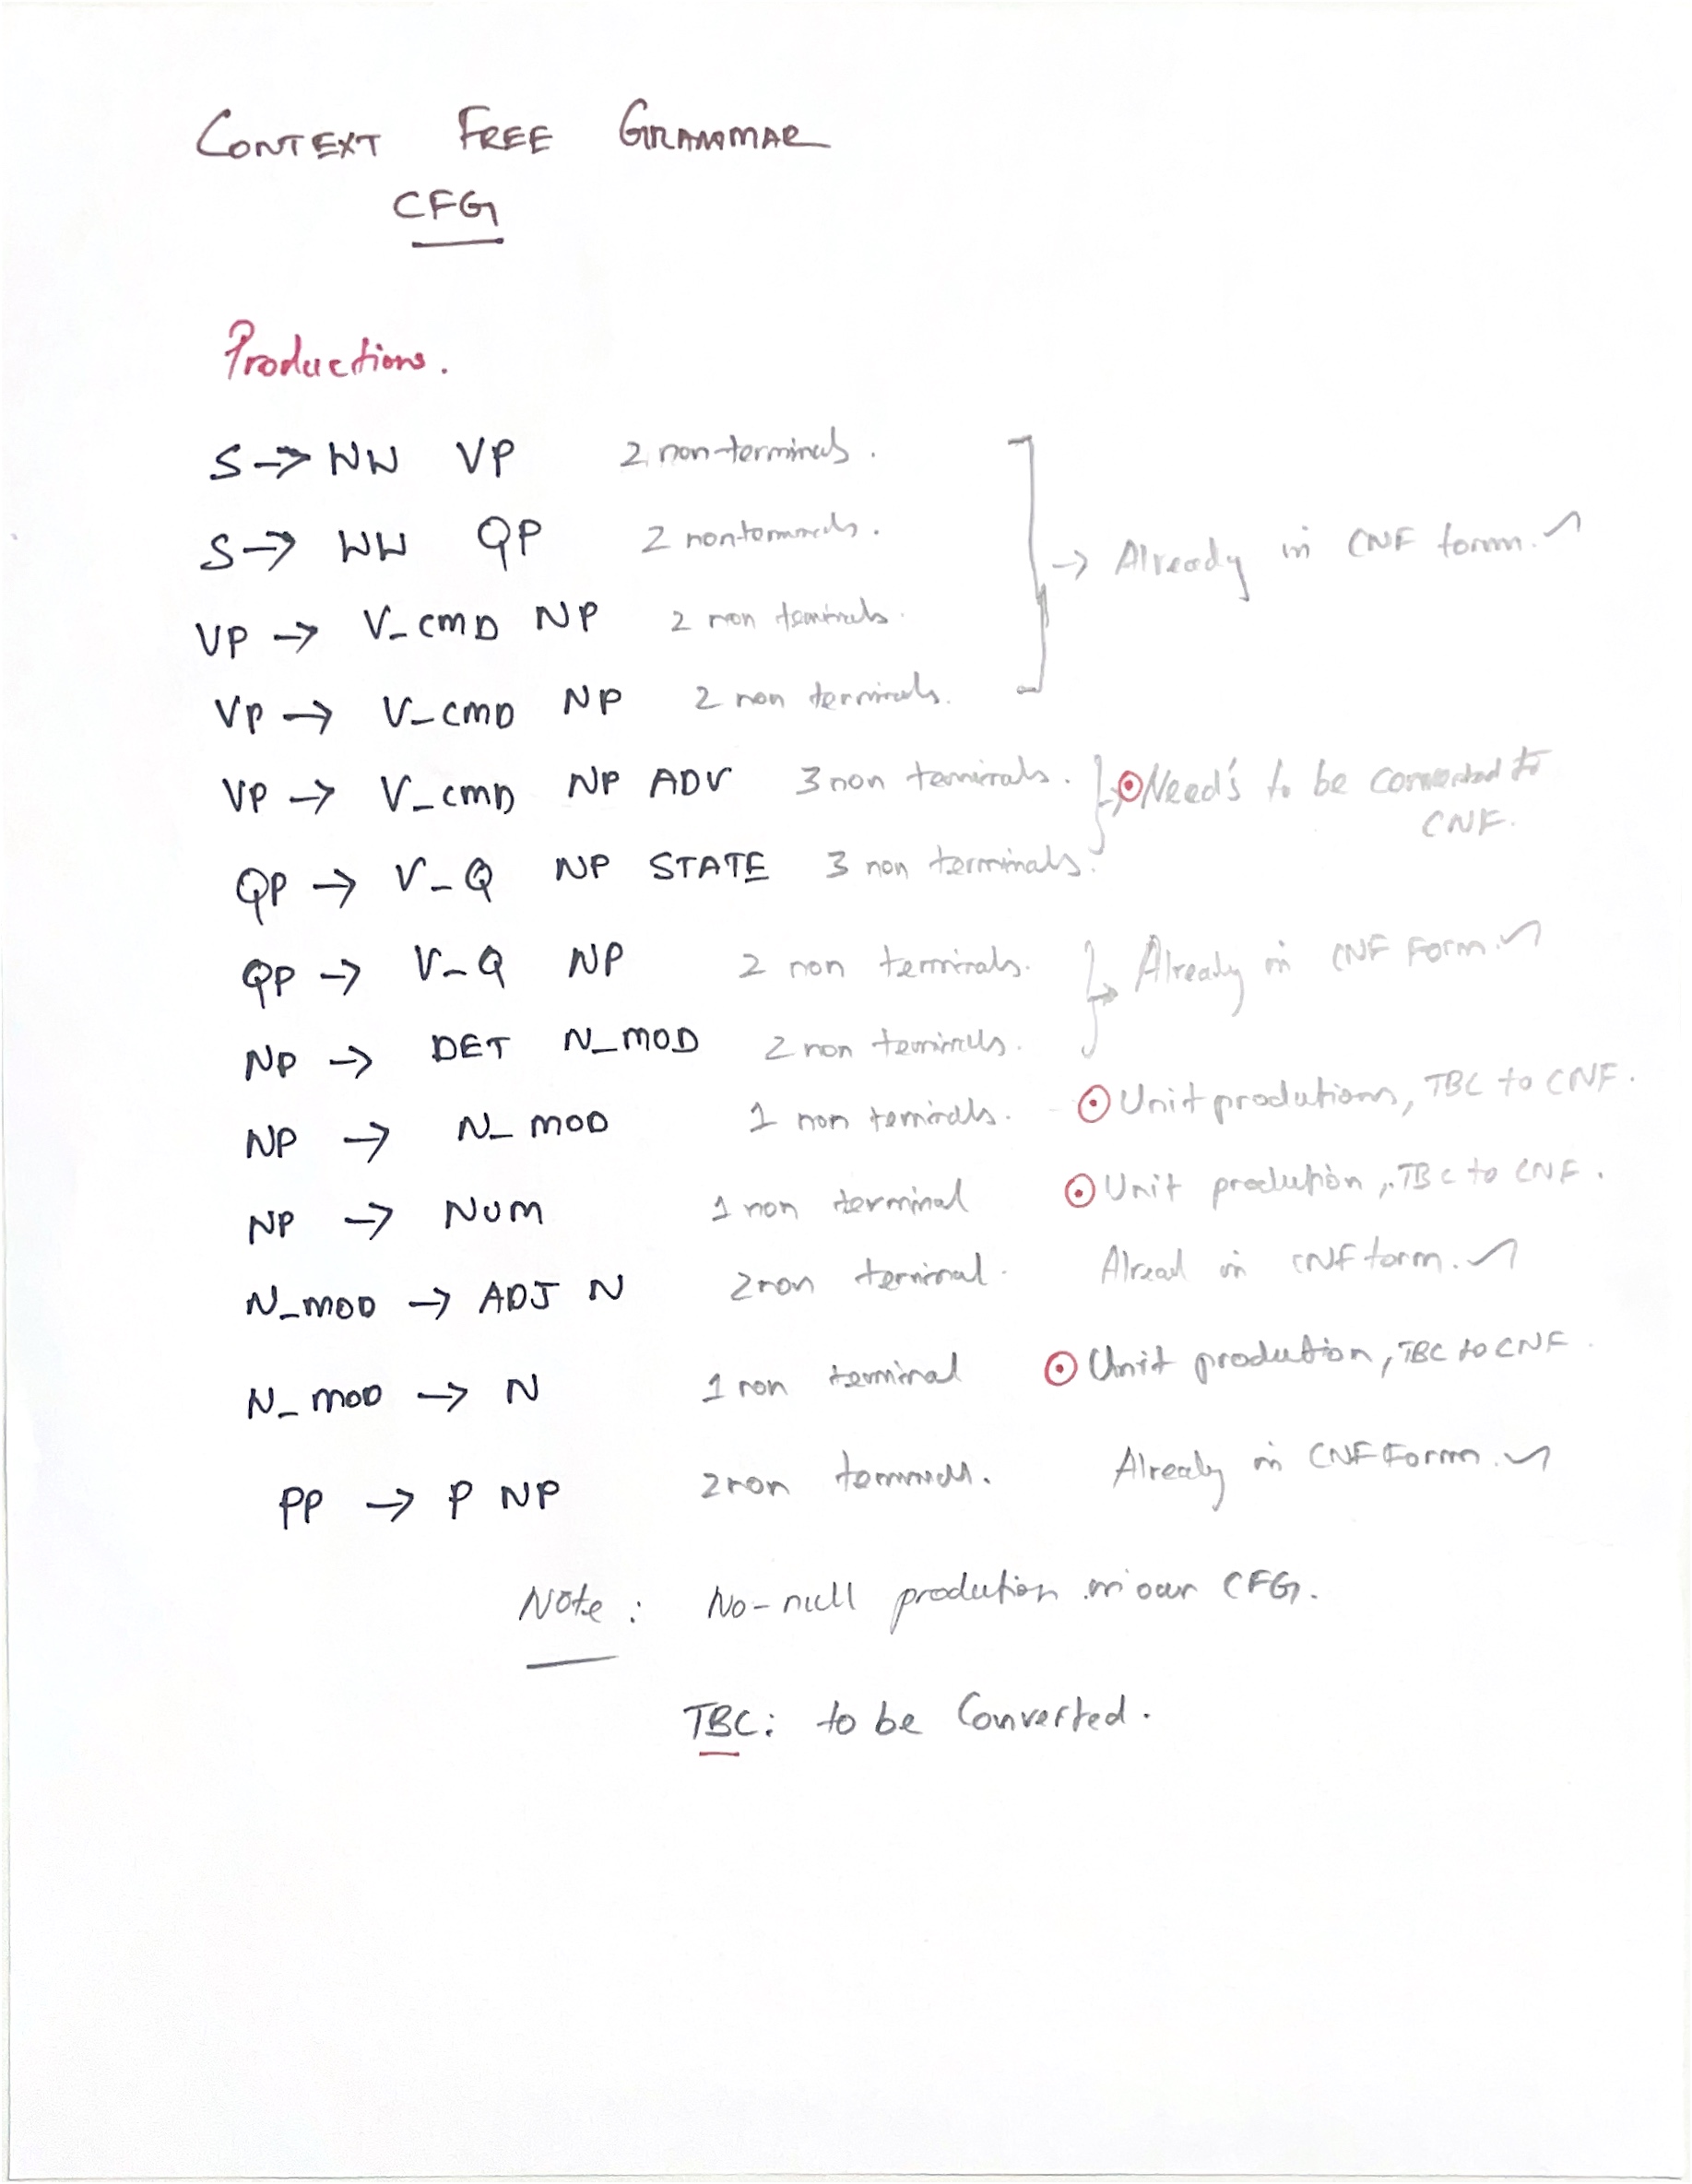 CONTEXT FREE GRAMMAR
CFG
Productions.
S → WW VP 2 non-terminals.
S → WW QP 2 non-terminals.
→ Already in CNF form.
VP → V_CMD NP 2 non terminals.
VP → V_CMD NP 2 non terminals.
VP → V_CMD NP ADV 3 non terminals. → Need's to be converted to
CNF.
QP → V_Q NP STATE 3 non terminals.
QP → V_Q NP 2 non terminals. → Already in CNF Form.
NP → DET N_MOD 2 non terminals.
NP → N_MOD 1 non terminals. Unit produtions, TBC to CNF.
NP → NUM 1 non terminal Unit prodution, TBC to CNF.
N_MOD → ADJ N 2 non terminal. Alread in CNF form.
N_MOD → N 1 non terminal Unit prodution, TBC to CNF.
PP → P NP 2 non terminals. Already in CNF Form.
Note: No-null prodution in our CFG.
TBC: to be Converted.